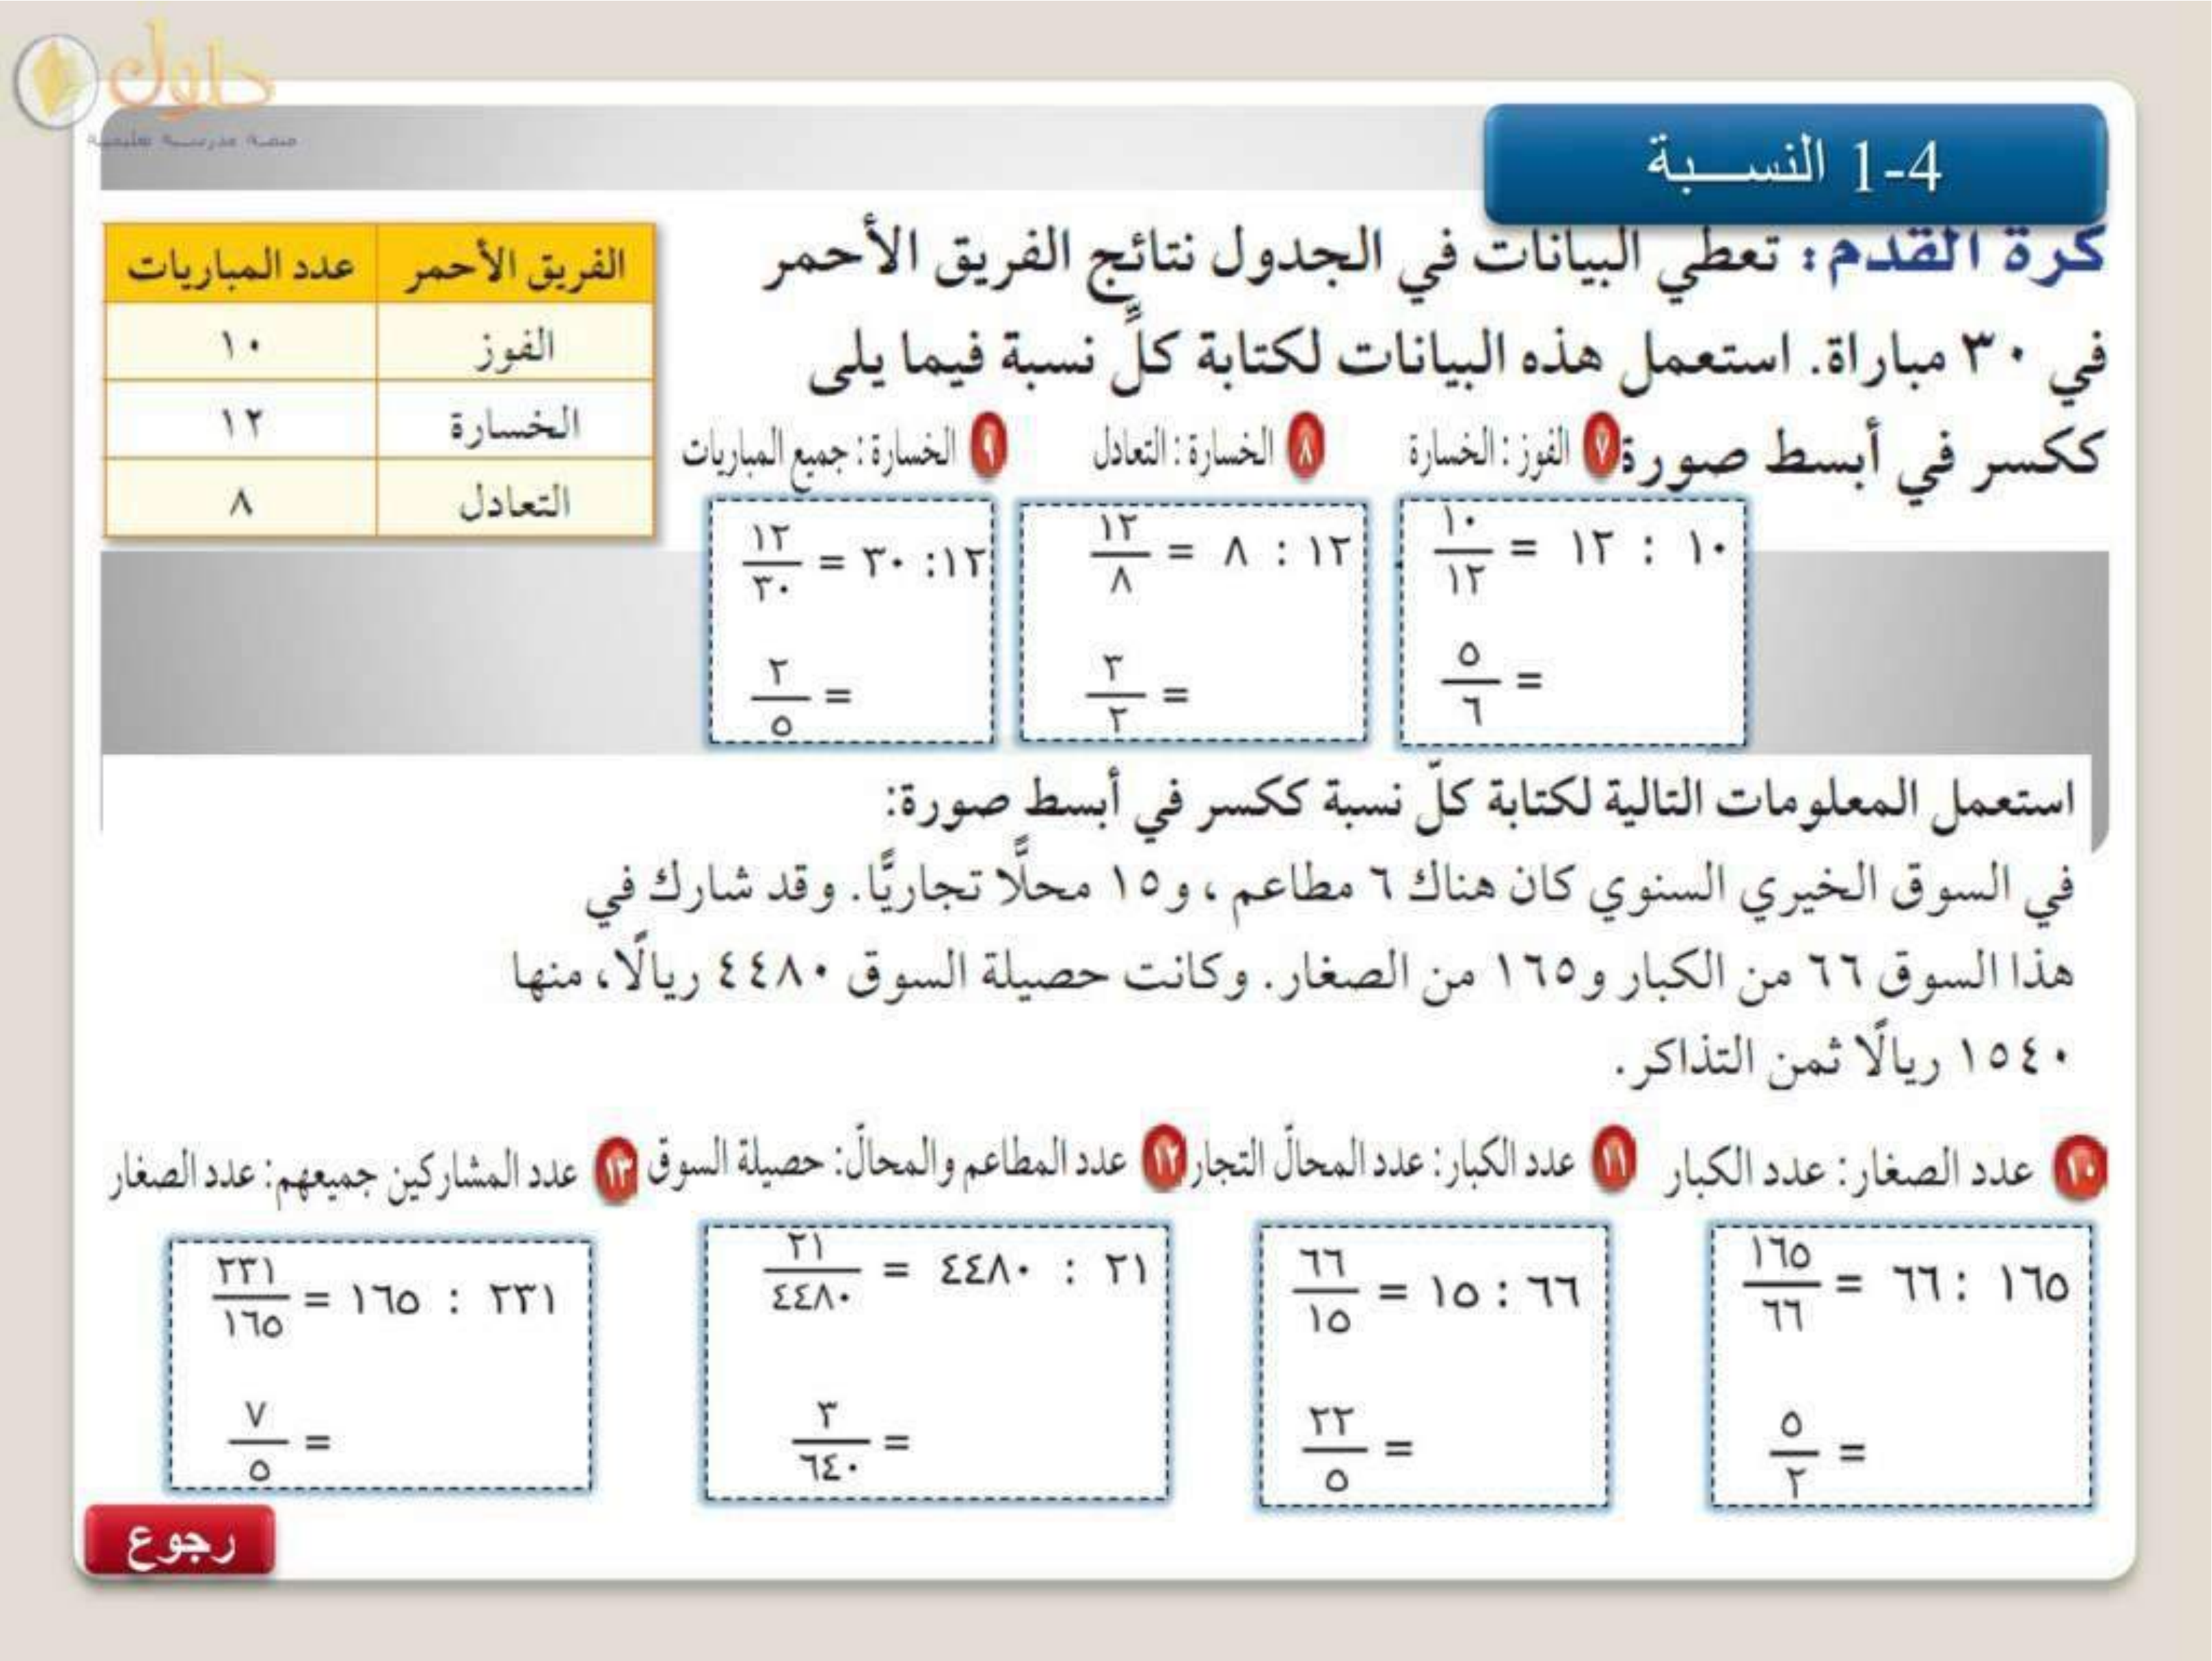 حلول
1-4 النسبة
كرة القدم: تعطي البيانات في الجدول نتائج الفريق الأحمر
في ٣٠ مباراة. استعمل هذه البيانات لكتابة كلِّ نسبة فيما يلى
ككسر في أبسط صورة
الفريق الأحمر عدد المباريات
الفوز ١٠
الخسارة ١٢
التعادل ٨
٧ الفوز : الخسارة
١٠ : ١٢ = ١٠/١٢
= ٥/٦
٨ الخسارة : التعادل
١٢ : ٨ = ١٢/٨
= ٣/٢
٩ الخسارة : جميع المباريات
١٢: ٣٠ = ١٢/٣٠
= ٢/٥
استعمل المعلومات التالية لكتابة كلّ نسبة ككسر في أبسط صورة:
في السوق الخيري السنوي كان هناك ٦ مطاعم ، و١٥ محلًّا تجاريًّا. وقد شارك في
هذا السوق ٦٦ من الكبار و١٦٥ من الصغار. وكانت حصيلة السوق ٤٤٨٠ ريالًا، منها
١٥٤٠ ريالًا ثمن التذاكر.
١٠ عدد الصغار: عدد الكبار
١٦٥ : ٦٦ = ١٦٥/٦٦
= ٥/٢
١١ عدد الكبار: عدد المحالّ التجار
٦٦ : ١٥ = ٦٦/١٥
= ٢٢/٥
١٢ عدد المطاعم والمحالّ: حصيلة السوق
٢١ : ٤٤٨٠ = ٢١/٤٤٨٠
= ٣/٦٤٠
١٣ عدد المشاركين جميعهم: عدد الصغار
٢٣١ : ١٦٥ = ٢٣١/١٦٥
= ٧/٥
رجوع